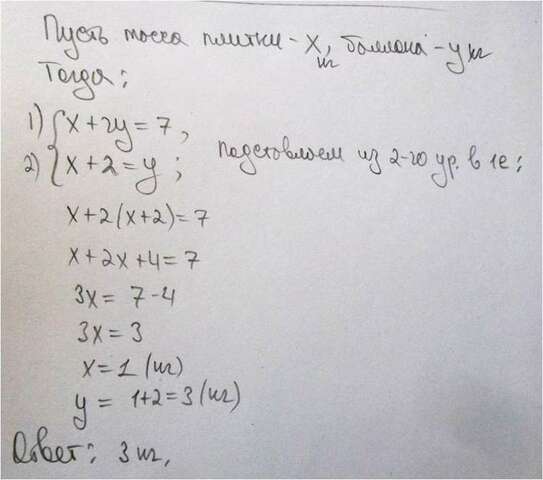 Пусть масса плитки - x кг, баллона - y кг
Тогда:
1) { x + 2y = 7,
2) { x + 2 = y; подставляем из 2-го ур. в 1е:
x + 2(x+2) = 7
x + 2x + 4 = 7
3x = 7 - 4
3x = 3
x = 1 (кг)
y = 1+2 = 3 (кг)
Ответ: 3 кг.